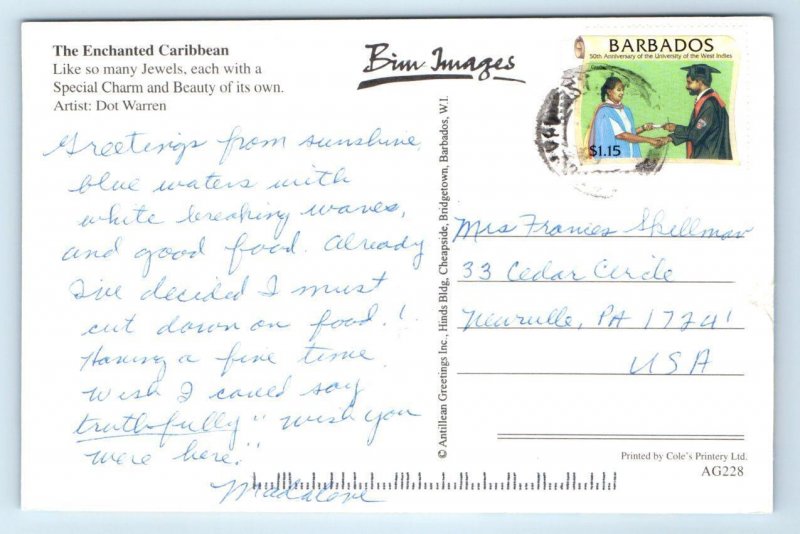 The Enchanted Caribbean
Like so many Jewels, each with a
Special Charm and Beauty of its own.
Artist: Dot Warren
Bim Images
BARBADOS
50th Anniversary of the University of the West Indies
$1.15
Greetings from sunshine,
blue waters with
white breaking waves,
and good food. Already
I've decided I must
cut down on food.!
Having a fine time.
Wish I could say
truthfully "wish you
were here."
Madalene
© Antillean Greetings Inc., Hinds Bldg, Cheapside, Bridgetown, Barbados, W.I.
Mrs Frances Skellman
33 Cedar Circle
Newville, PA 17241
USA
Printed by Cole's Printery Ltd.
AG228